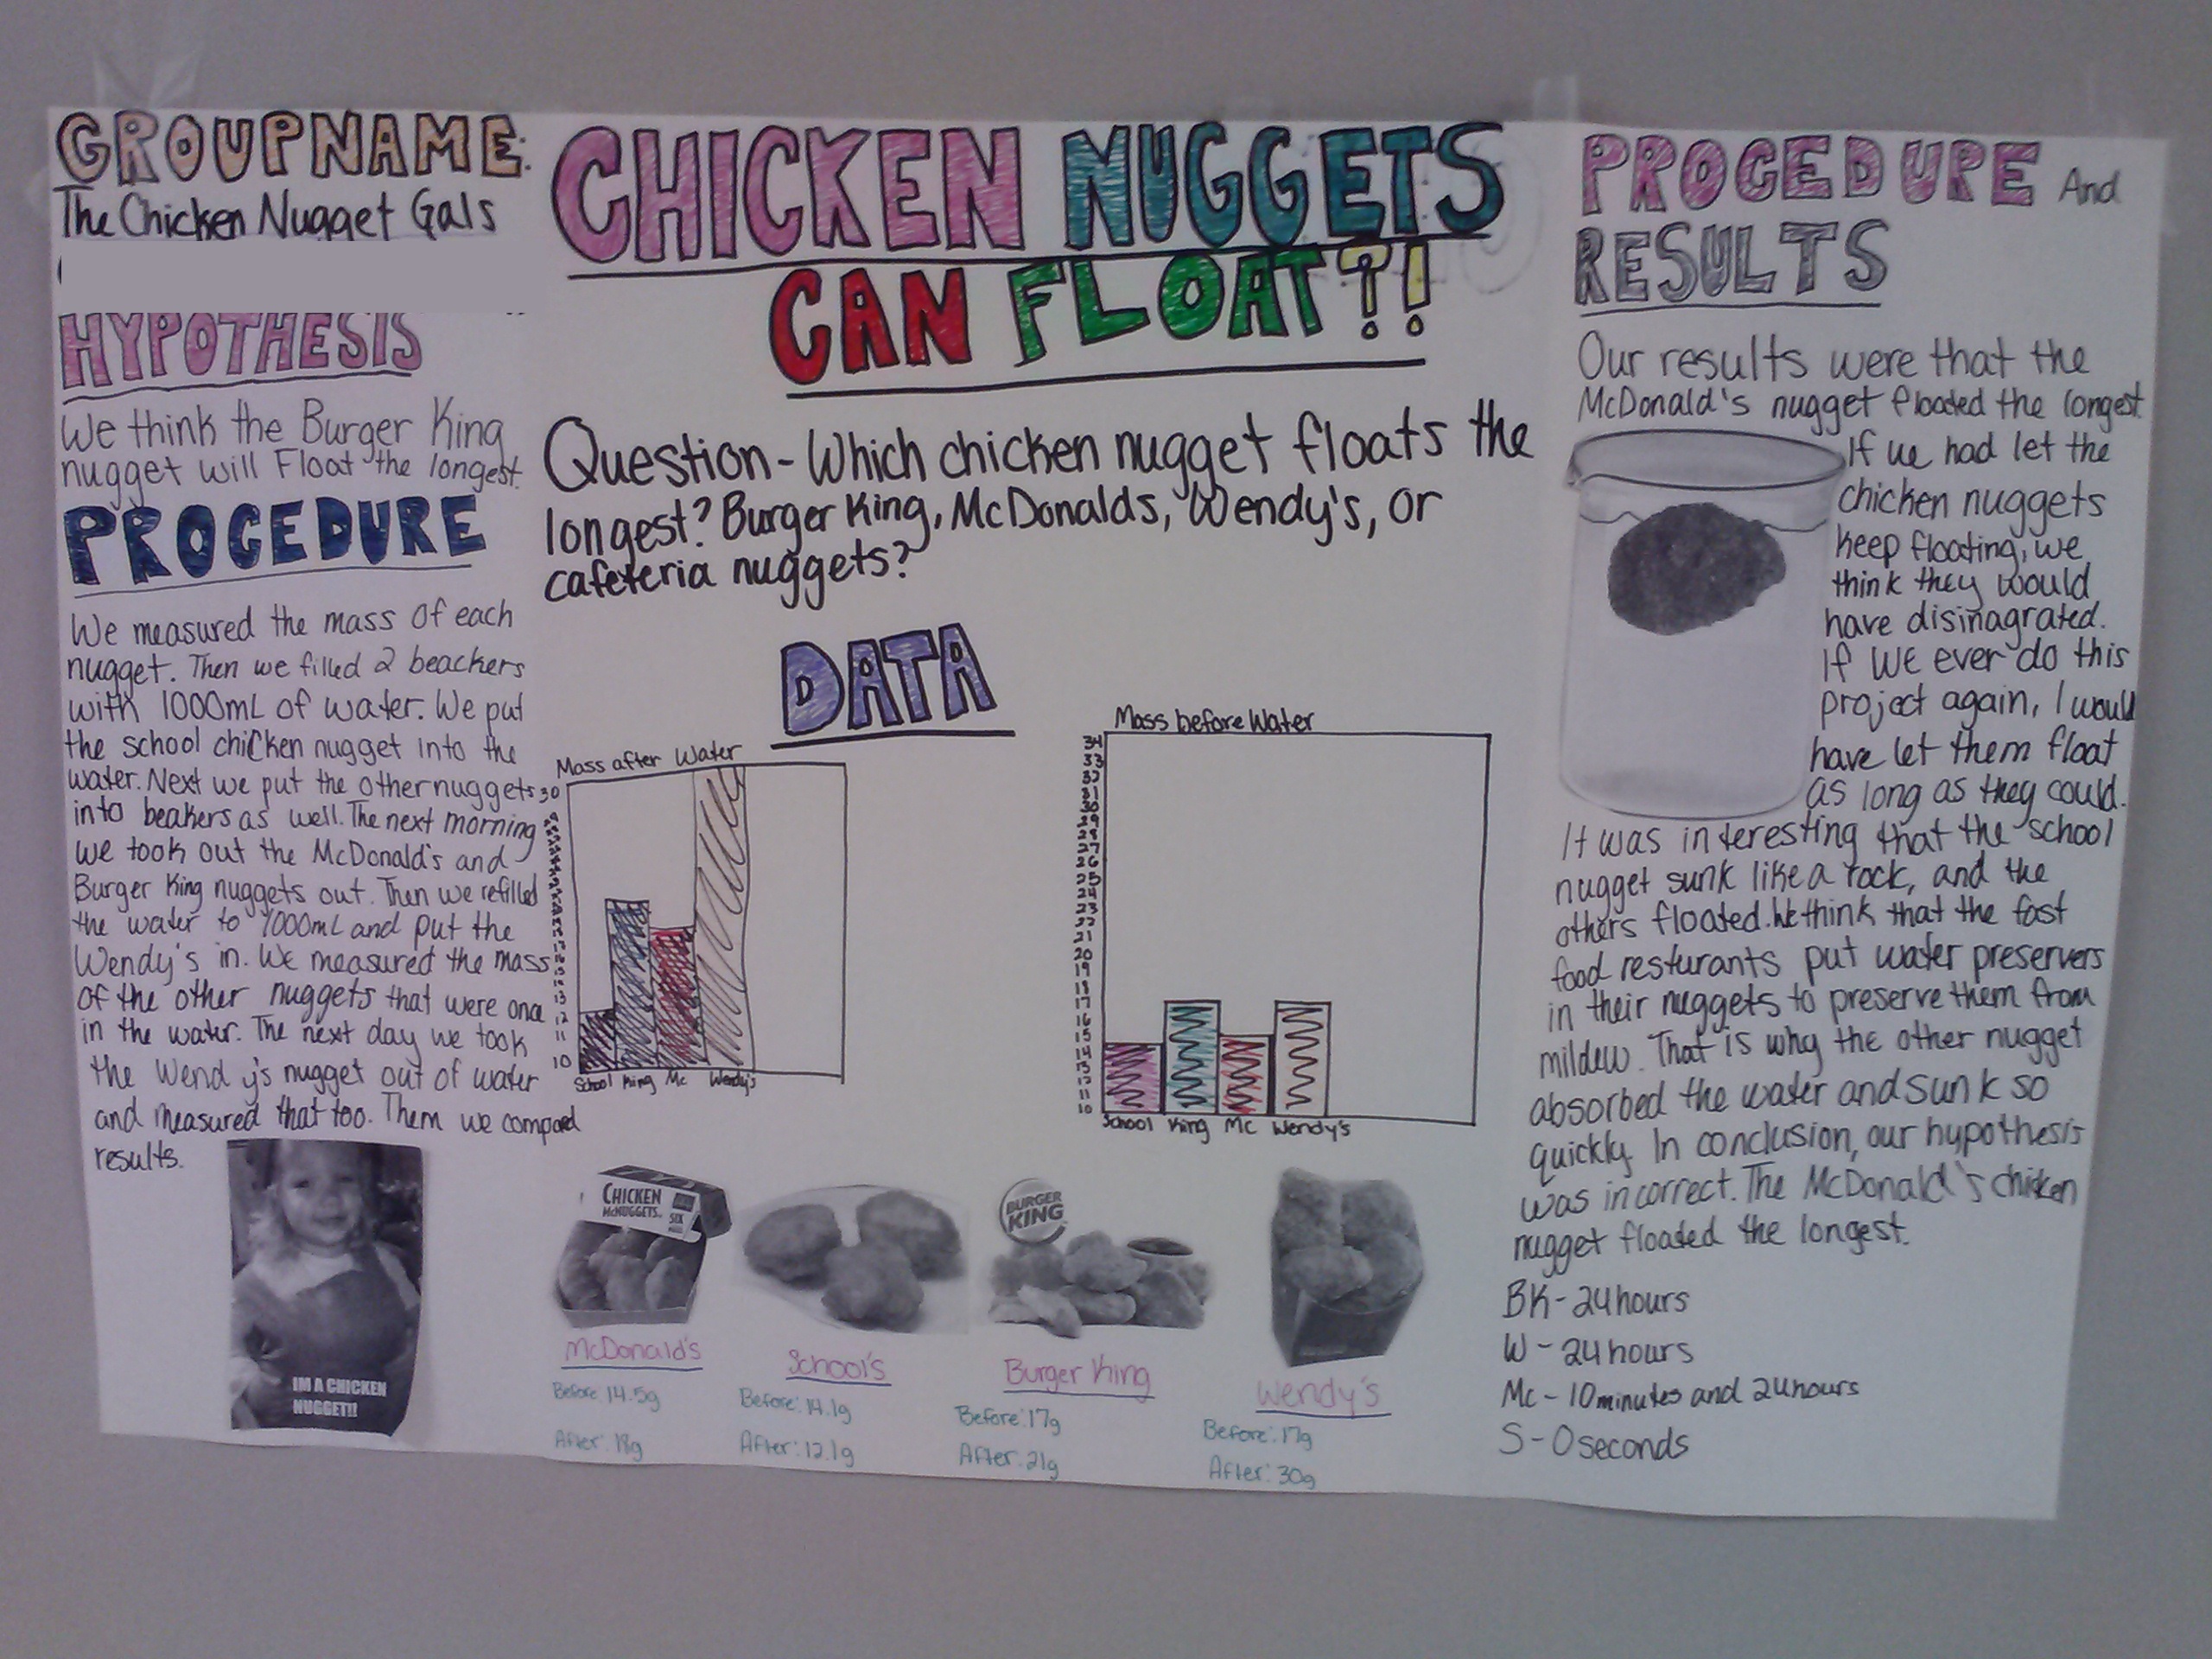 GROUPNAME:
The Chicken Nugget Gals
HYPOTHESIS
We think the Burger King
nugget will Float the longest.
PROCEDURE
We measured the mass of each
nugget. Then we filled 2 beackers
with 1000mL of water. We put
the school chicken nugget into the
water. Next we put the other nuggets
into beakers as well. The next morning
we took out the McDonald's and
Burger King nuggets out. Then we refilled
the water to 1000mL and put the
Wendy's in. We measured the mass
of the other nuggets that were once
in the water. The next day we took
the Wendy's nugget out of water
and measured that too. Them we compaed
results.
IM A CHICKEN
NUGGET!!
CHICKEN NUGGETS
CAN FLOAT?!
Question - Which chicken nugget floats the
longest? Burger King, McDonalds, Wendy's, or
cafeteria nuggets?
DATA
Mass after Water
30
13
12
11
10
School King Mc Wendy's
Mass before Water
34
33
32
31
30
29
28
27
26
25
24
23
22
21
20
19
18
17
16
15
14
13
12
11
10
School King Mc Wendy's
CHICKEN
McNUGGETS
SIX
McDonald's
Before 14.5g
After: 18g
School's
Before: 14.1g
After: 12.1g
BURGER
KING
Burger King
Before: 17g
After: 21g
Wendy's
Before: 17g
After: 30g
PROCEDURE And
RESULTS
Our results were that the
McDonald's nugget floated the longest.
If we had let the
chicken nuggets
keep floating, we
think they would
have disinagrated.
If we ever do this
project again, I would
have let them float
as long as they could.
It was interesting that the school
nugget sunk like a rock, and the
others floated. We think that the fast
food resturants put water preservers
in their nuggets to preserve them from
mildew. That is why the other nugget
absorbed the water and sunk so
quickly. In conclusion, our hypothesis
was incorrect. The McDonald's chicken
nugget floated the longest.
BK - 24 hours
W - 24 hours
Mc - 10 minutes and 24 hours
S - 0 seconds